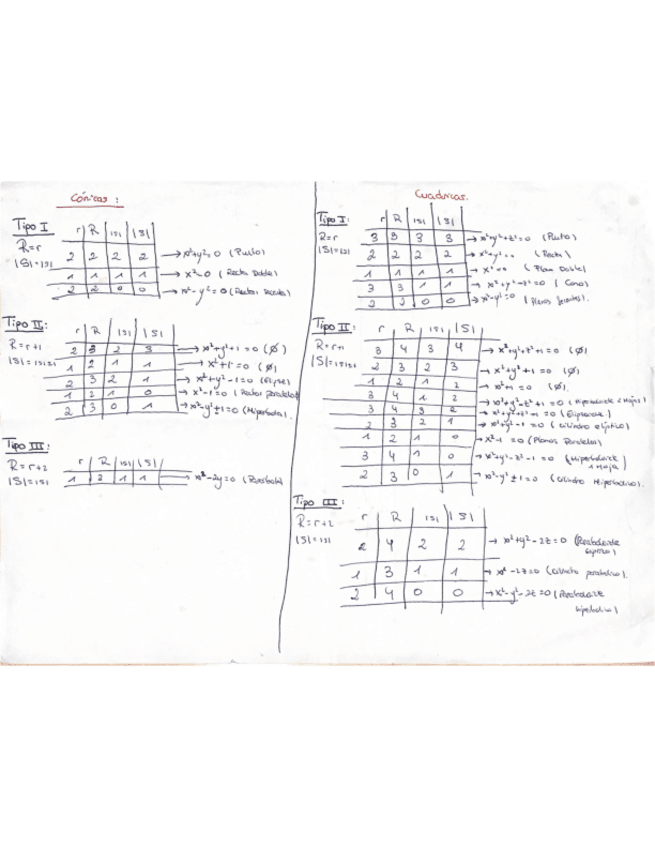 Cónicas:
Tipo I
R=r
|S|=|s|
r | R | |s| | |S|
2 | 2 | 2 | 2 → x²+y²=0 (Punto)
1 | 1 | 1 | 1 → x²=0 (Recta Doble)
2 | 2 | 0 | 0 → x²-y²=0 (Rectas secantes)
Tipo II:
R=r+1
r | R | |s| | |S|
2 | 3 | 2 | 3 → x²+y²+1=0 (∅)
1 | 2 | 1 | 1 → x²+1=0 (∅)
2 | 3 | 2 | 1 → x²+y²-1=0 (Elipse)
1 | 2 | 1 | 0 → x²-1=0 (Rectas paralelas)
2 | 3 | 0 | 1 → x²-y²±1=0 (Hipérbola).
Tipo III:
R=r+2
|S|=|s|
r | R | |s| | |S|
1 | 3 | 1 | 1 → x²-2y=0 (Parábola)
Cuádricas.
Tipo I:
R=r
|S|=|s|
r | R | |s| | |S|
3 | 3 | 3 | 3 → x²+y²+z²=0 (Punto)
2 | 2 | 2 | 2 → x²+y²=0 (Recta)
1 | 1 | 1 | 1 → x²=0 (Plano Doble)
3 | 3 | 1 | 1 → x²+y²-z²=0 (Cono)
2 | 2 | 0 | 0 → x²-y²=0 (Planos secantes).
Tipo II:
R=r+1
r | R | |s| | |S|
3 | 4 | 3 | 4 → x²+y²+z²+1=0 (∅)
2 | 3 | 2 | 3 → x²+y²+1=0 (∅)
1 | 2 | 1 | 2 → x²+1=0 (∅).
3 | 4 | 1 | 2 → x²+y²-z²+1=0 (Hiperboloide 2 Hojas)
3 | 4 | 3 | 2 → x²+y²+z²-1=0 (Elipsoide)
2 | 3 | 2 | 1 → x²+y²-1=0 (Cilindro elíptico)
1 | 2 | 1 | 0 → x²-1=0 (Planos Paralelos)
3 | 4 | 1 | 0 → x²+y²-z²-1=0 (Hiperboloide 1 Hoja)
2 | 3 | 0 | 1 → x²-y²±1=0 (Cilindro Hiperbólico).
Tipo III:
R=r+2
|S|=|s|
r | R | |s| | |S|
2 | 4 | 2 | 2 → x²+y²-2z=0 (Paraboloide elíptico)
1 | 3 | 1 | 1 → x²-2z=0 (Cilindro parabólico).
2 | 4 | 0 | 0 → x²-y²-2z=0 (Paraboloide hiperbólico)